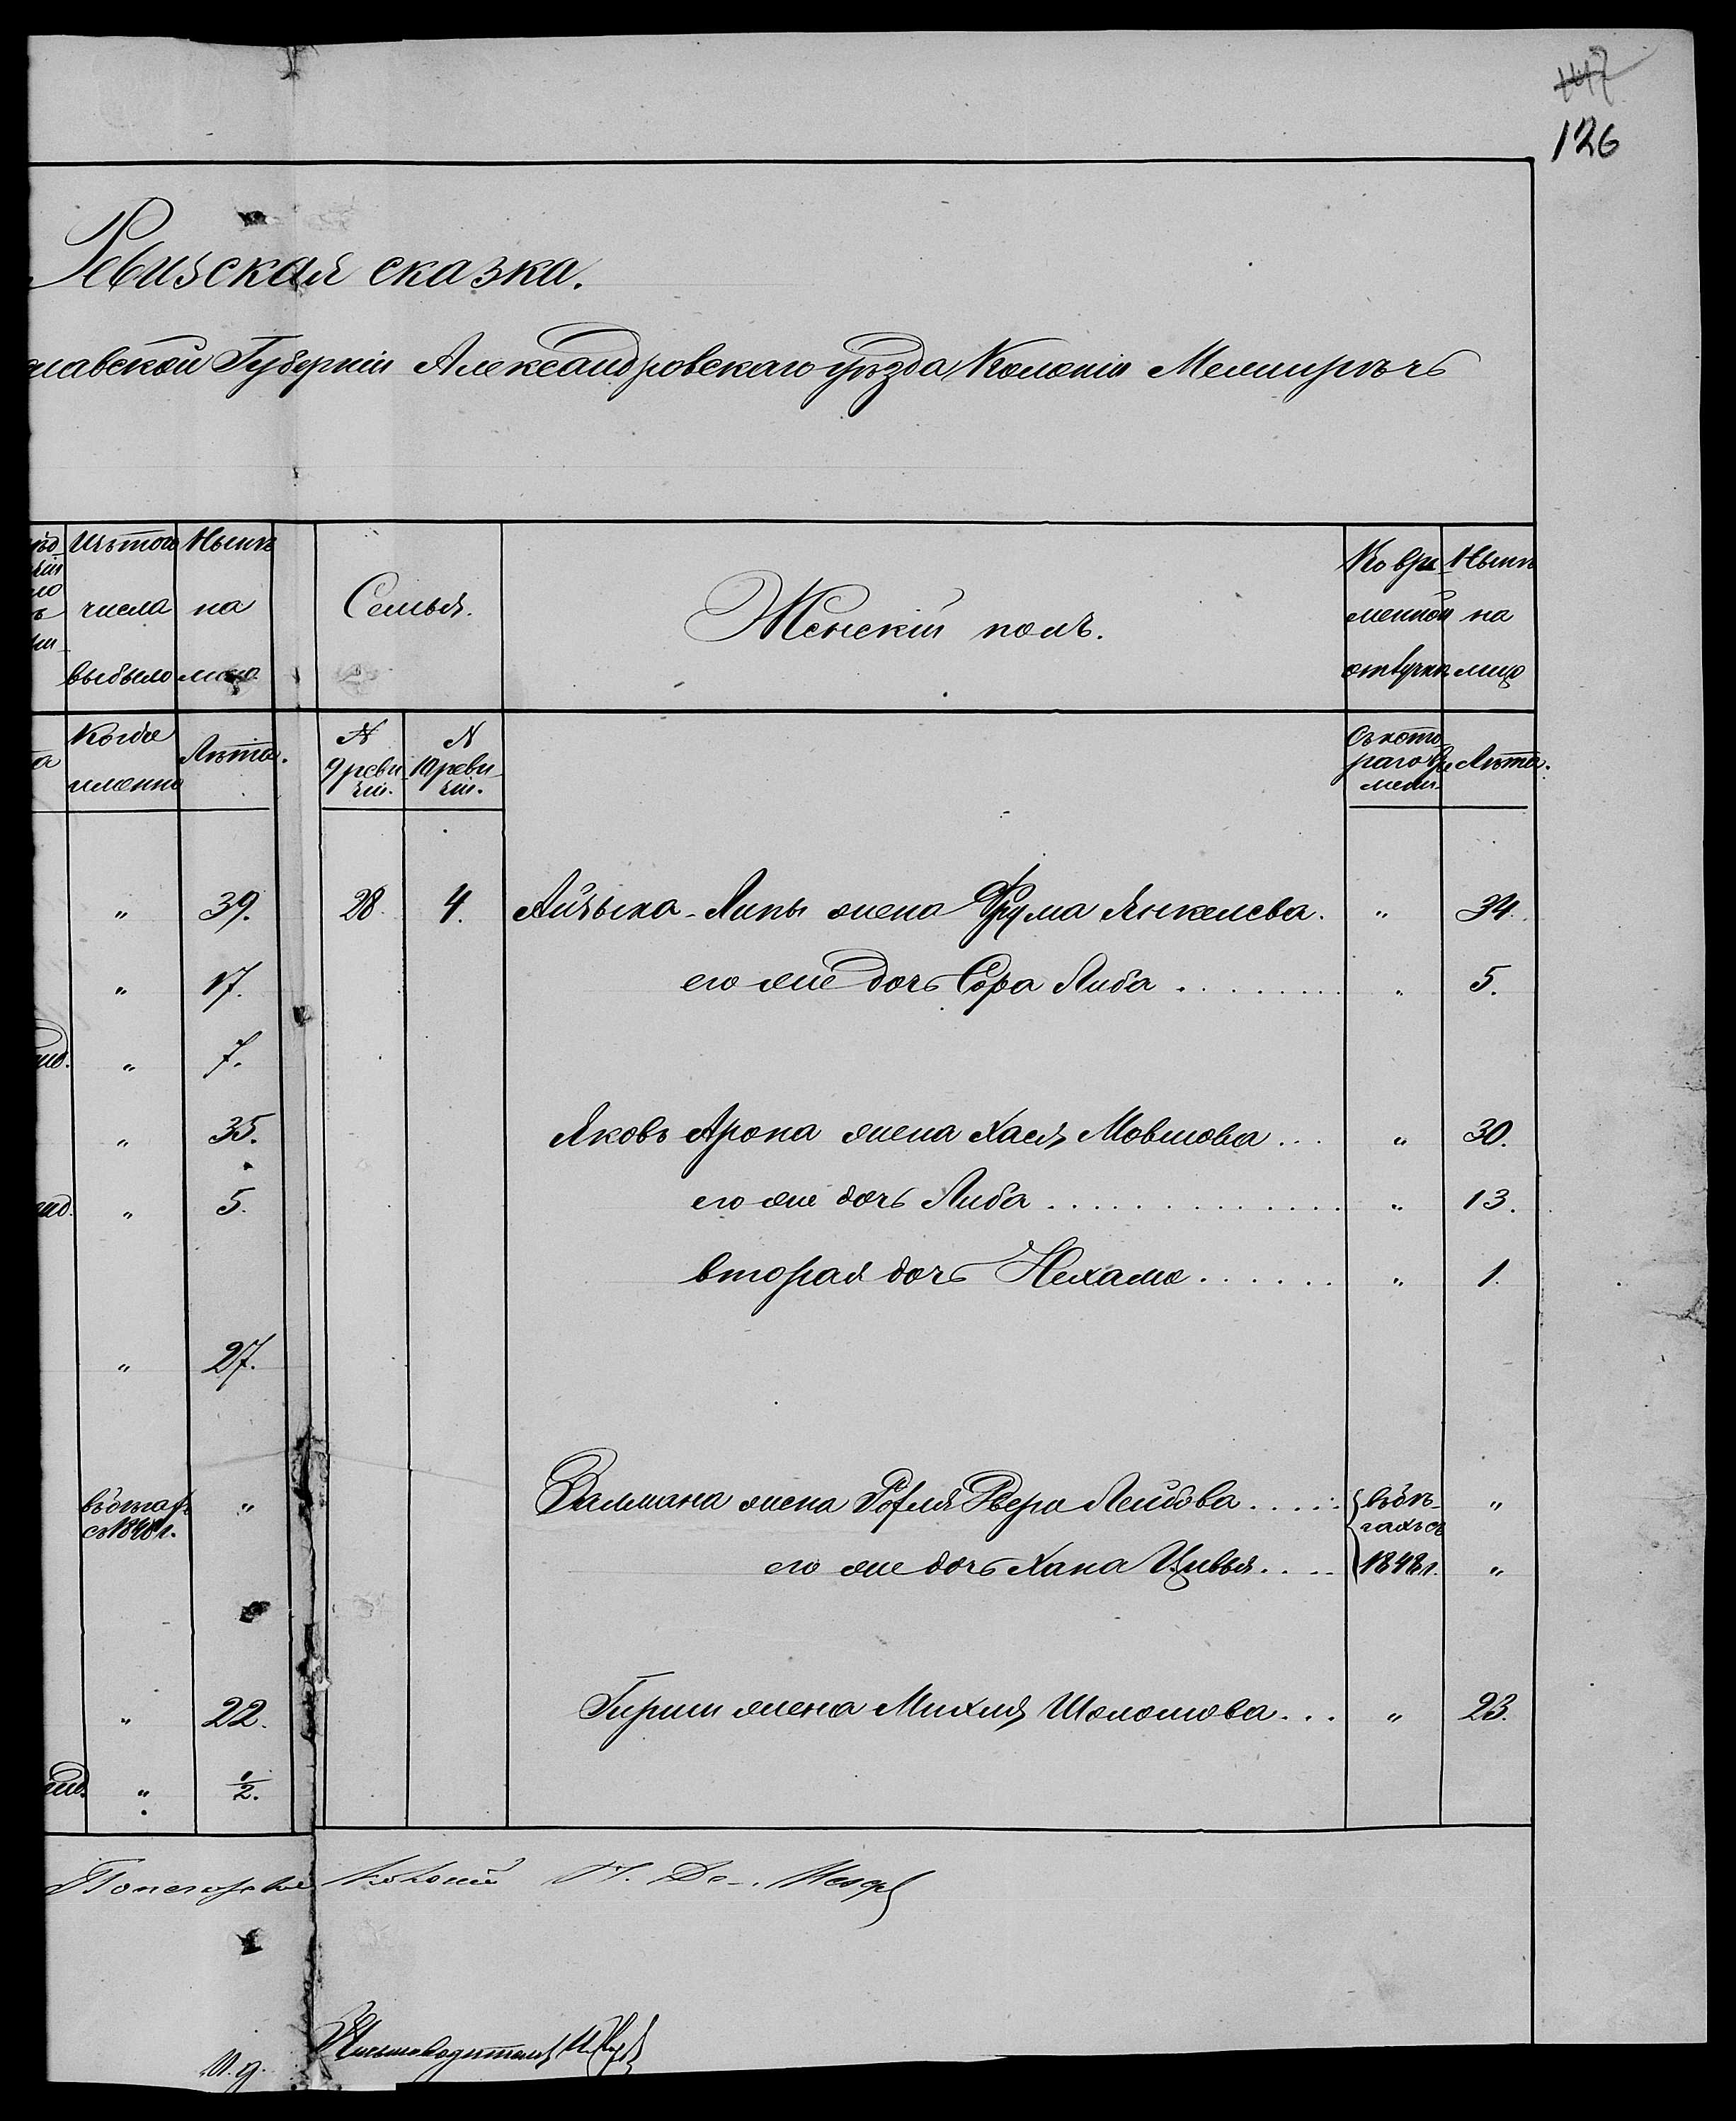 147
126
Ревизская сказка.
славской Губерніи Александровскаго уѣзда Колоніи Межирѣчь
Изъ того
числа
выбыло
Нынѣ
на
лицо
Семья.
Женскій полъ.
Во вре-
менной
отлучкѣ
Нынѣ
на
лицо
Когда
именно
Лѣта.
№
9 реви
зіи.
№
10 реви
зіи.
Съ кото
раго вре
мени
Лѣта.
" 39. 28. 4. Айзыка-Липы жена Фрума Янкелева. " 34.
" 17. его же дочь Сора Либа " 5.
" 7.
" 35. Яковъ Арона жена Хася Мовшова " 30.
" 5. его же дочь Либа " 13.
вторая дочь Нехама " 1.
" 27.
въ бѣгахъ " Залмана жена Двера Лейбова въ бѣ- "
съ 1848 г. гахъ съ
его же дочь Хана Цивья 1848 г. "
" 22. Гирши жена Михля Шоломова " 23.
" ½.
И. д. Письмоводителя